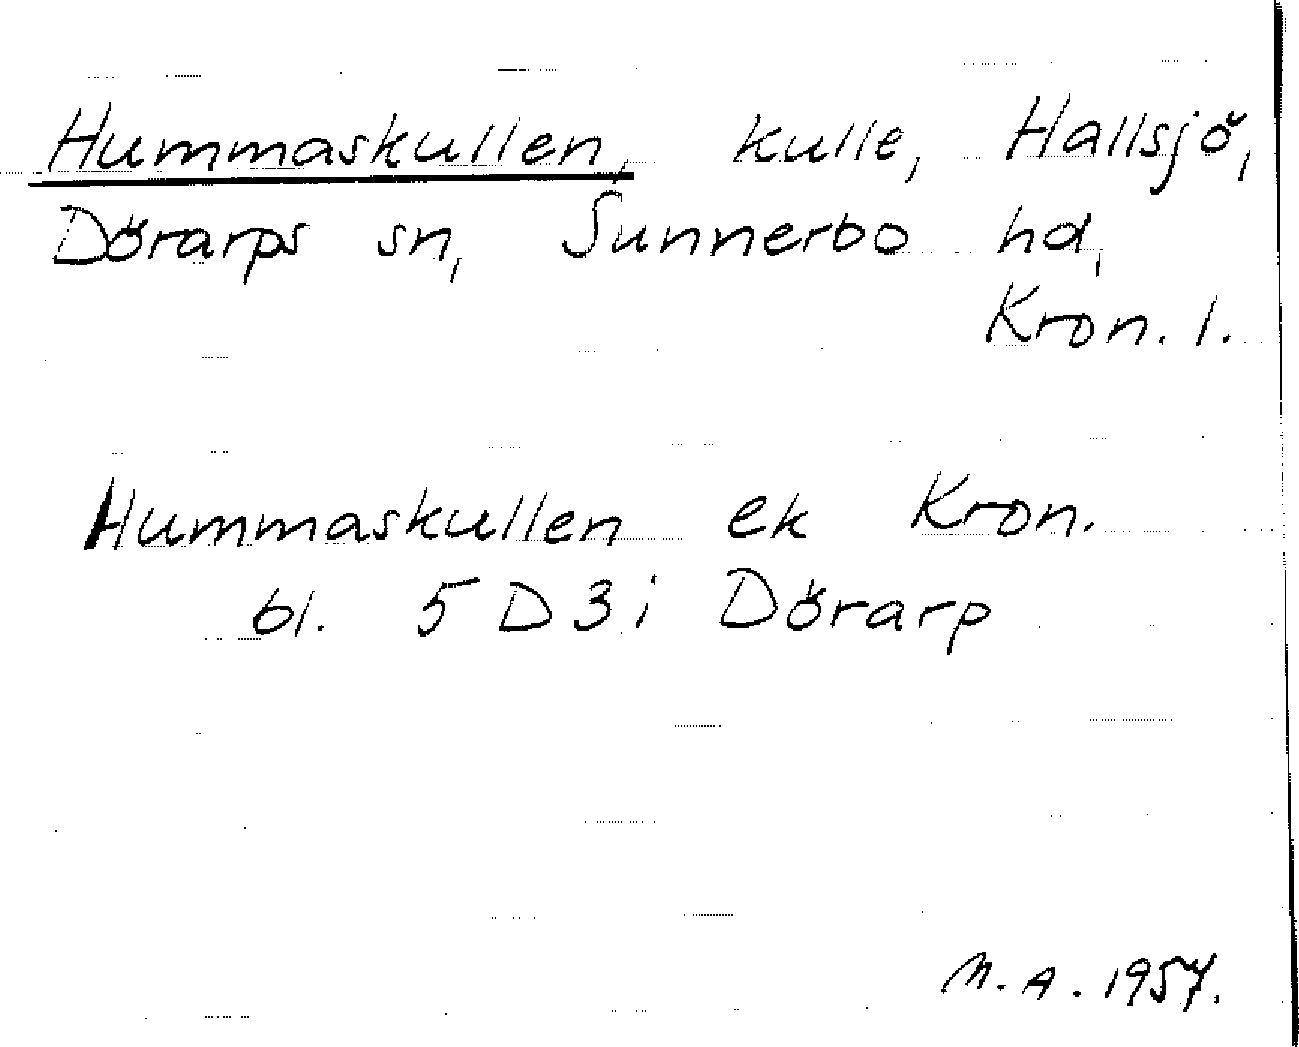 Hummaskullen, kulle, Hallsjö,
Dörarps sn, Sunnerbo hd,
Kron. l.
Hummaskullen ek Kron.
bl. 5 D 3 i Dörarp
M. A. 1957.